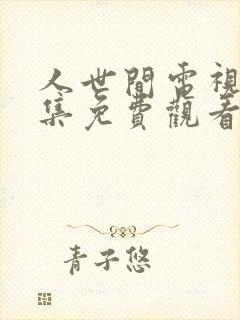 人世間電視
集免費觀看
青子悠